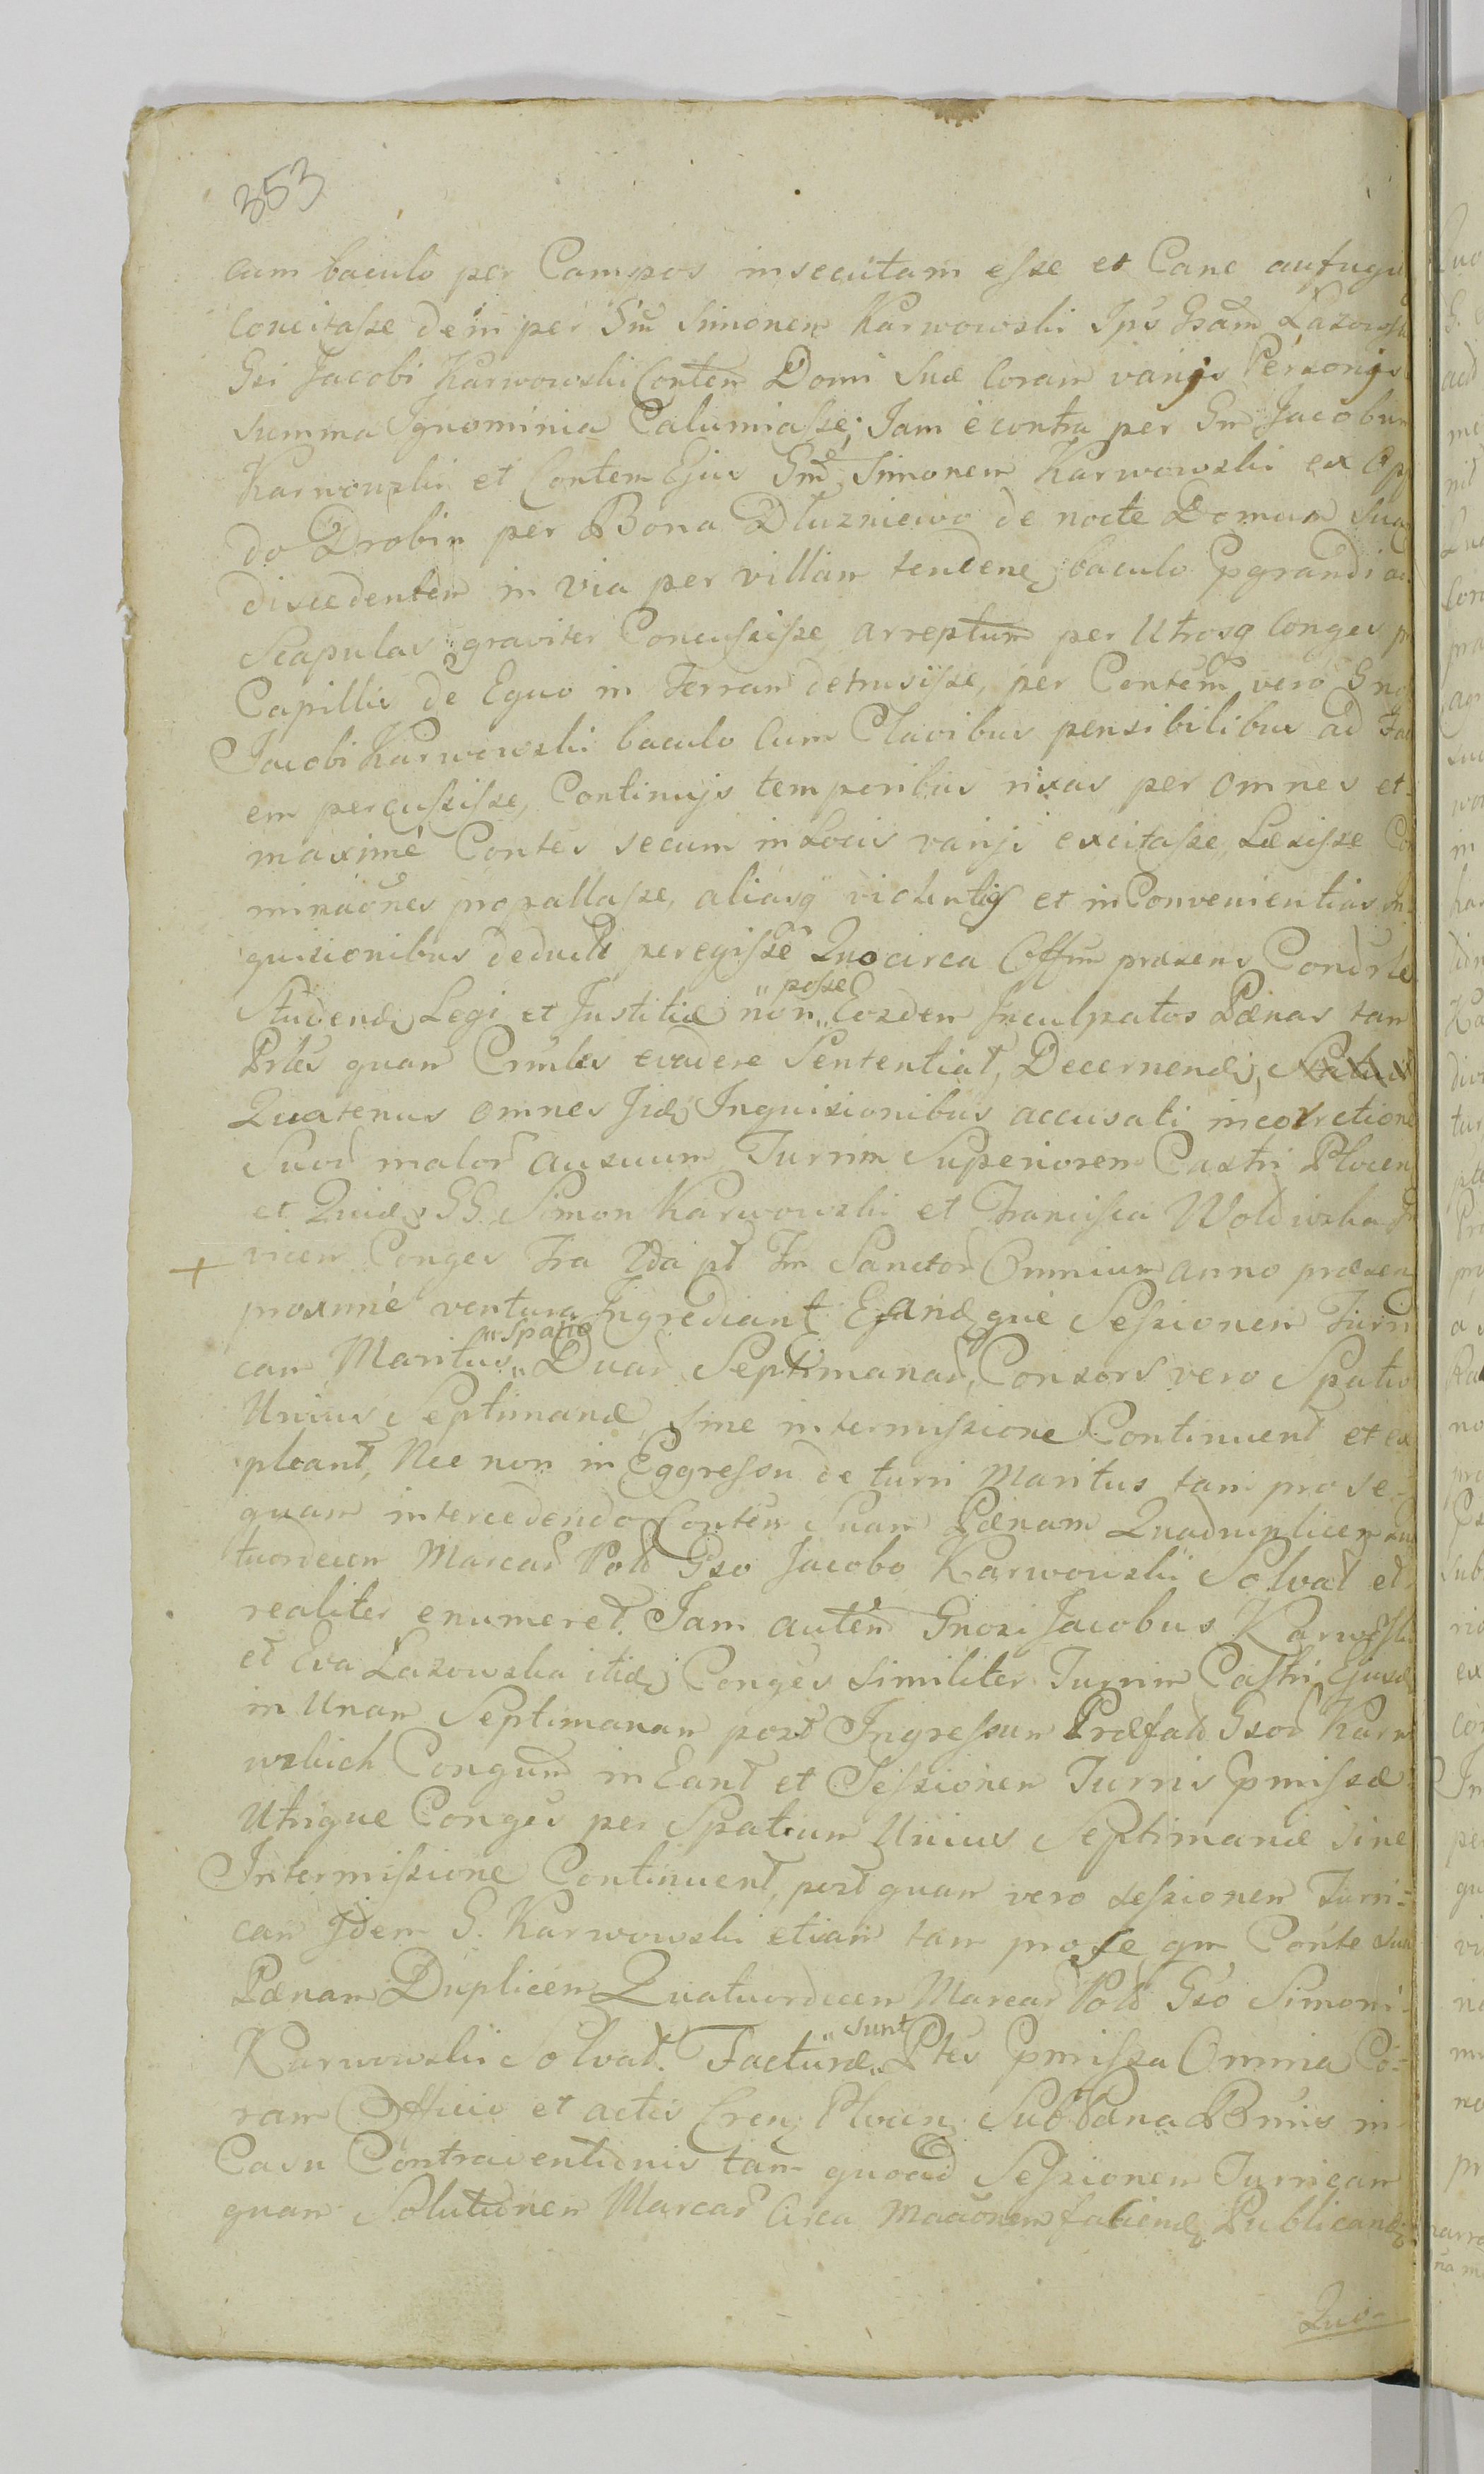 353
cum baculo per Campos insecutam esse et Cane aufugi
concitasse dein per Gm Simonem Karwowski Ips Gsam Łazowsk
Gsi Jacobi Karwowski Contem Domi Suæ Coram varijs Personis
summa Ignominia Calumiasse; Jam è contra per Gm Jacobum
Karwowski et Contem Ejus Gm Simonem Karwowski ex Op
do Drobin per Bona Dłuzniewo de nocte Domum Sua
discedentem in via per villam tendene baculo pgrandi ad
Scapulas graviter Concussisse arreptum per Utrosq Conges p
Capillis de Equo in Terram detrusisse, per Contem vero Gno
Jacobi Karwowski baculo Cum Clavibus pensibilibus ad Fac
em percussisse, Continujs temporibus rixas per omnes et
maximè Contes secum in Locis varijs excitasse, Læsisse Co
minaões propallasse, aliasq violentias et inConvenientias In
quisionibus deduct peregisse Quocirca Offm præsens Condrle
Studend Legi et Justitiæ non „posse„ Eosdem Inculpatos Pænas tam
Prles quam Crimles evadere Sententiat, Decernend,
Quatenus omnes Jid Inquisionibus accusati in coërctione
Suor malor ausuum Turrim Superiorem Castri Plocen
et Quid GG Simon Karwowski et Francisca Woldwska In
+ vicem Conges Fra 2da pt Fm Sanctor Omnium anno præsen
proximè ventura Ingrediant Eandque Sessionem Turri
cam Maritus „Spatio„ Duar Septimanar, Consors vero Spatio
Unius Septimanæ sine intermissione Continuent et ex
pleant, Nec non in Eggressu de turri Maritus tam pro se
quam intercedendo Contem Suam Pænam Quadruplicem qua
tuordecem Marcar Pol Gso Jacobo Karwowski Solvat et
realiter enumeret. Jam autem Gnosi Jacobus Karwoski
et Eva Łazowska itid Conges similiter Turrim Castri Ejusd
in Unam Septimanam post Ingressum Præfat Gsor Karwo
wskich Congum in Eant et Sessionem Turris pmissæ
Utrique Conges per Spatium Unius Septimanæ sine
Intermissione Continuent, post quam vero sessionem Turri=
cam Jdem G. Karwowski etiam tam pro se qm Conte sua
Pænam Duplicem Quatuordecem Marcar Pol Gso Simoni
Karwowski Solvat. Facturæ „sunt„ Ptes pmissa Omnia Co=
ram Officio et actis Cren Plocen Sub Pæna Bnnis in
Casu Contraventionis tam quoad Sessionem Turricam
quam Solutionem Marcar Circa maõnem faciend Publicand
Quo-